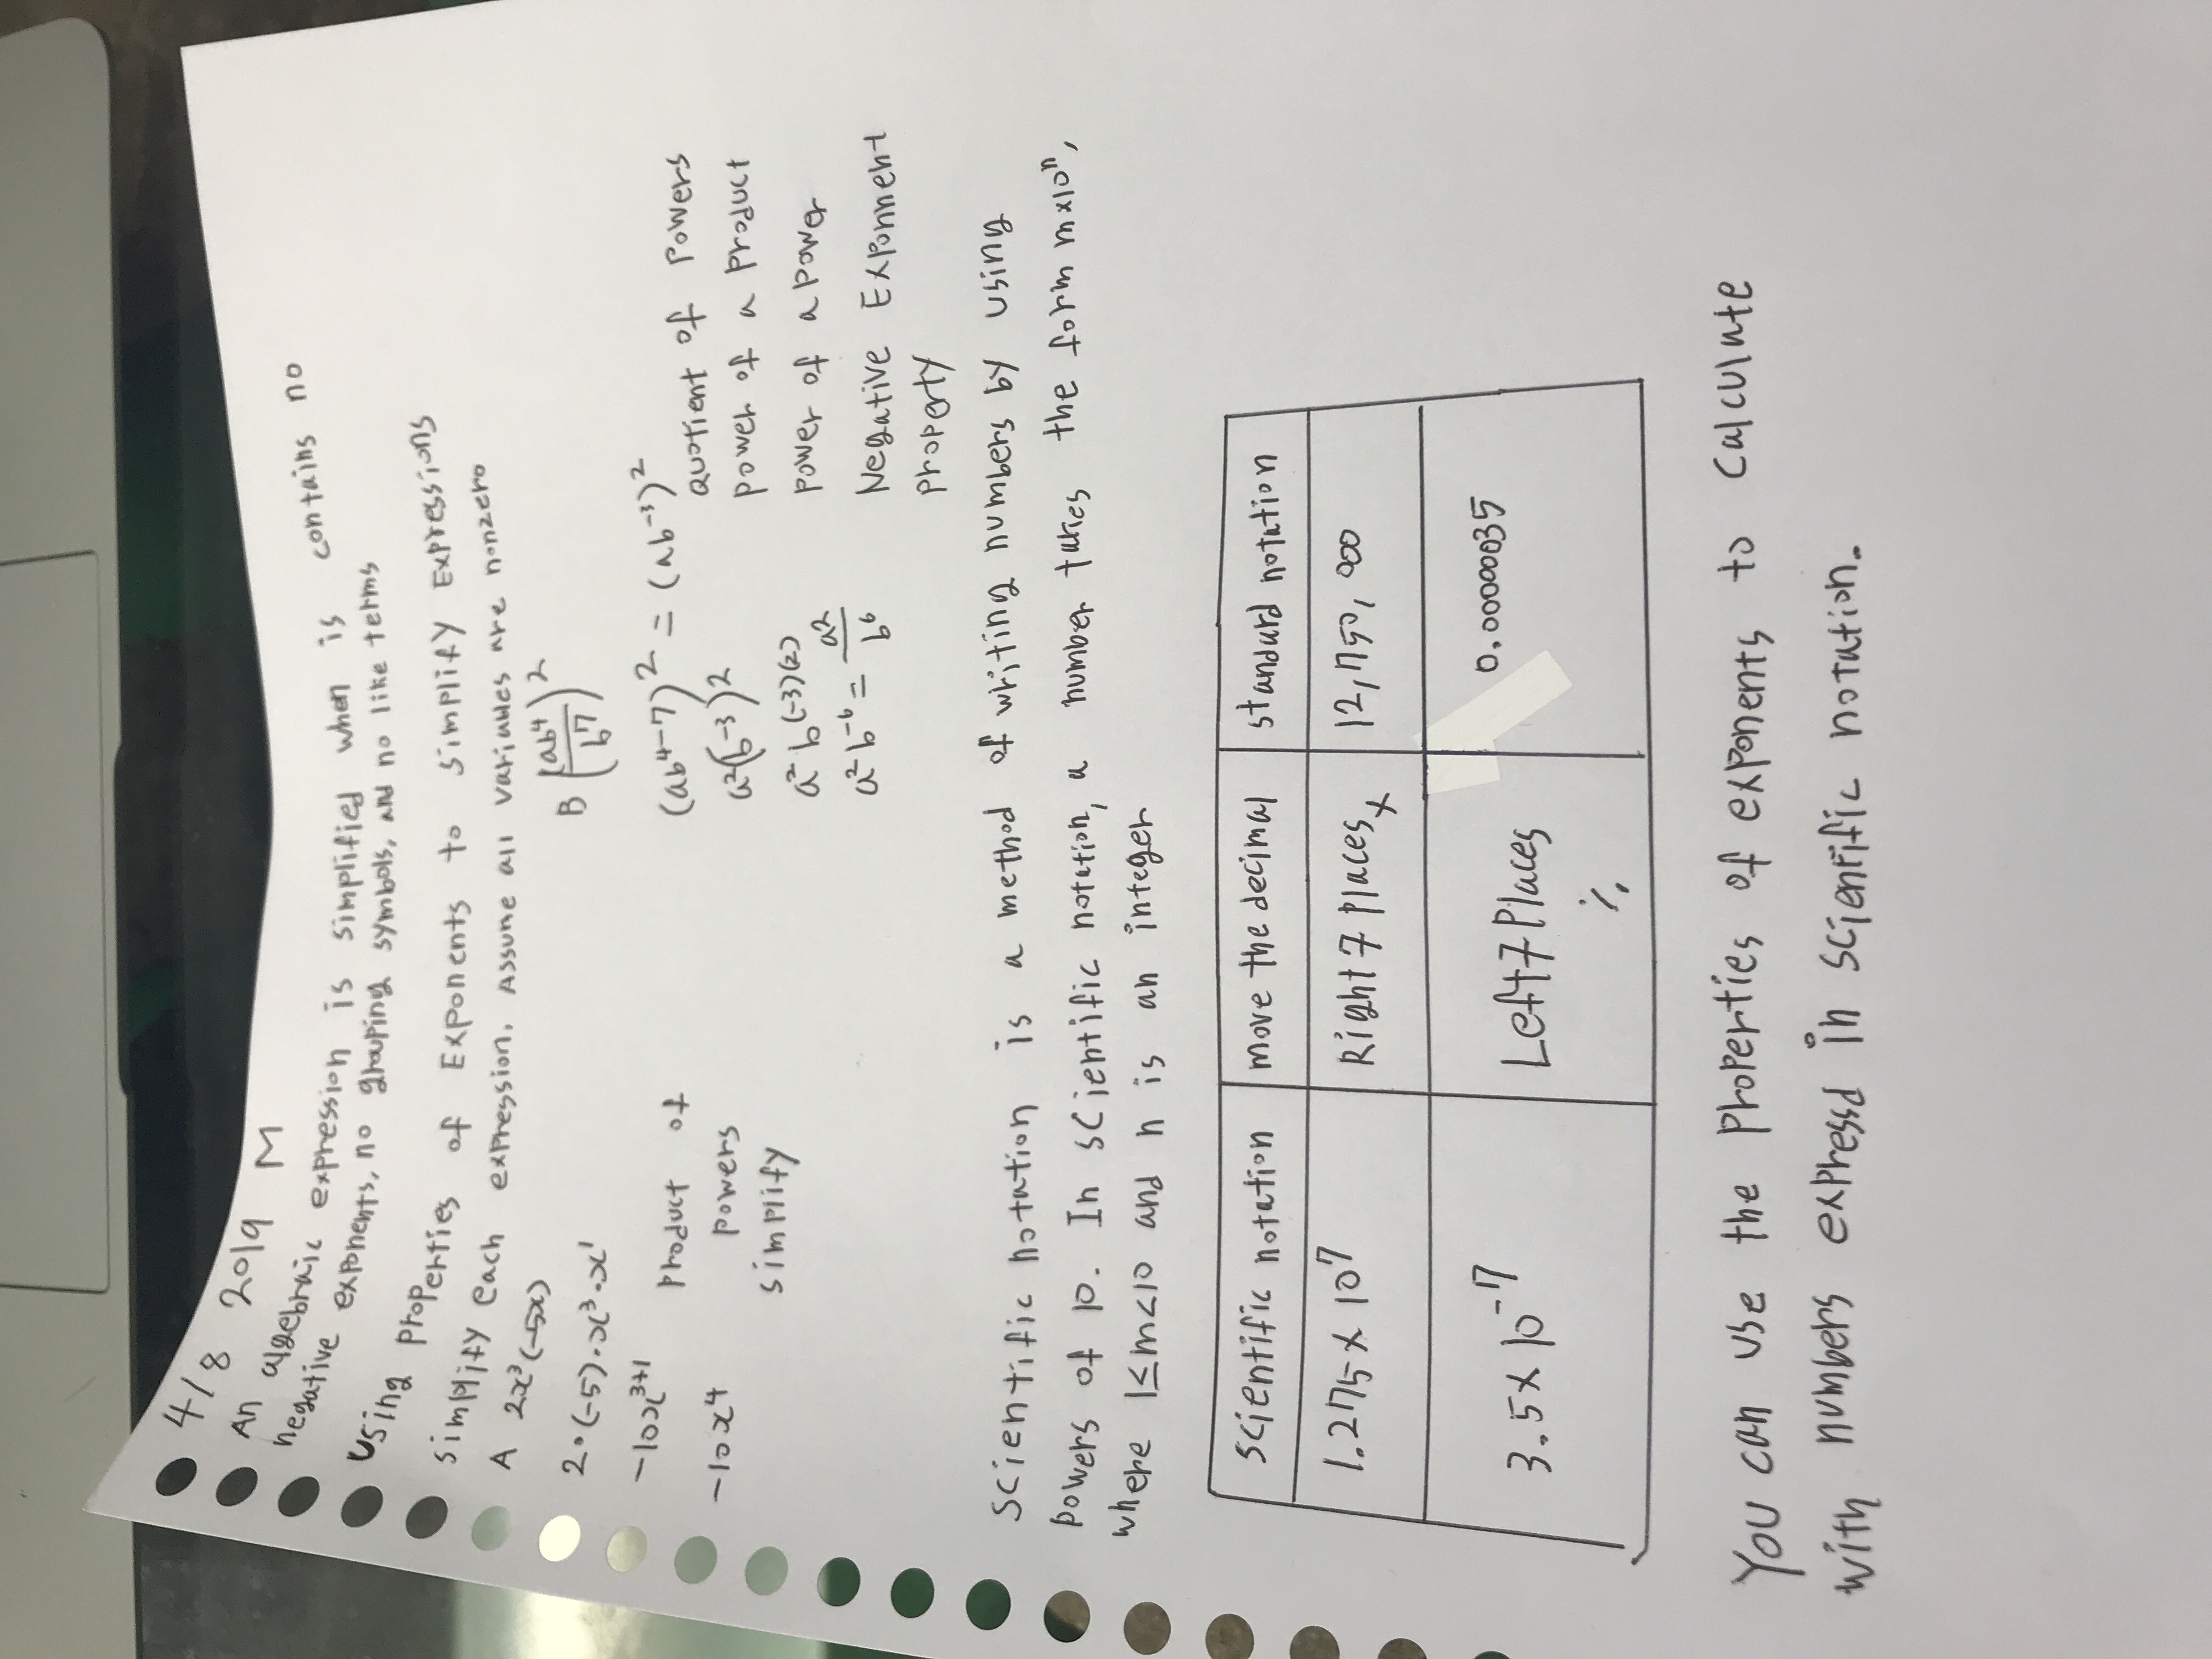 4/8 2019 M
An algebraic expression is simplified when is contains no
negative exponents, no grouping symbols, and no like terms
Using Properties of Exponents to simplify Expressions
simplify each expression. Assume all variables are nonzero
A 2x³(-5x)
2·(-5)·x³·x¹
-10x³⁺¹ Product of
powers
-10x⁴ simplify
B (ab⁴/b⁷)²
(ab⁴⁻⁷)² = (ab⁻³)²
a²(b⁻³)² quotient of powers
power of a product
a² b⁽⁻³⁾⁽²⁾ power of a power
a² b⁻⁶ = a²/b⁶ Negative Exponnent
Property
Scientific notation is a method of writing numbers by using
powers of 10. In scientific notation, a number takes the form m×10ⁿ,
where 1≤m<10 and n is an integer
scientific notation move the decimal standard notation
1.275 × 10⁷ Right 7 places x 12,750,000
3.5 × 10⁻⁷ Left 7 Places 0.00000035
%
You can use the Properties of exponents to calculate
with numbers expressd in scientific notation.